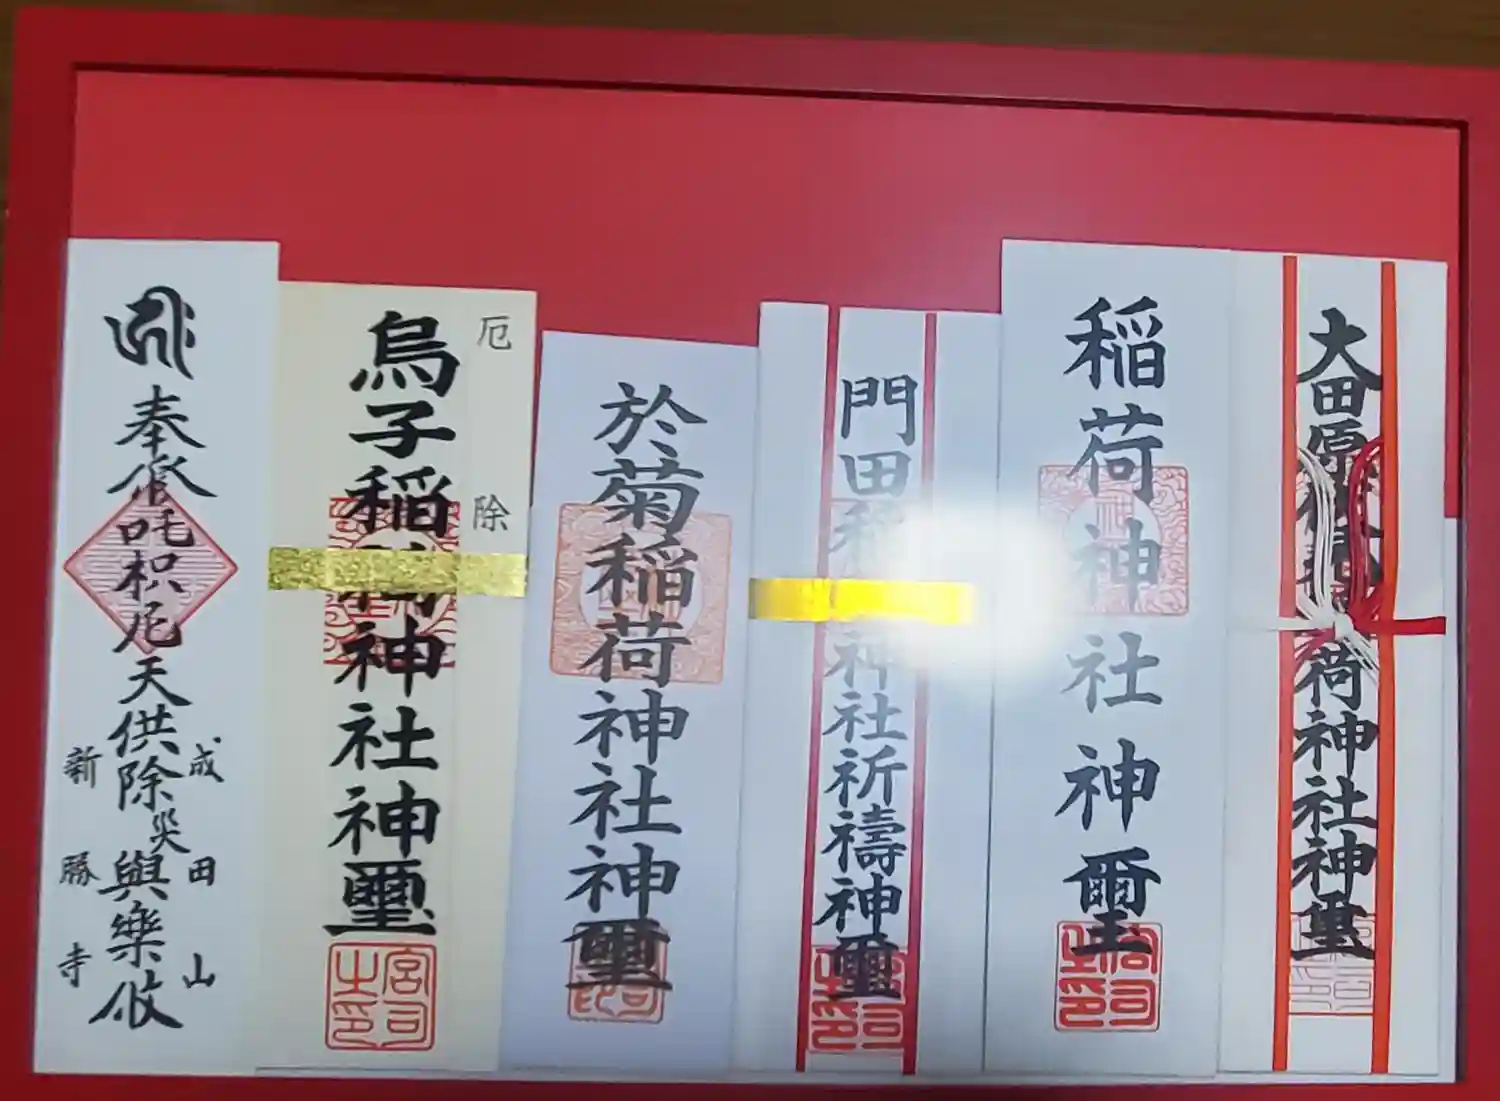 大田原
荷神社神璽
稲荷神社神璽
門田稲
神社祈禱神璽
於菊稲荷神社神璽
厄除
烏子稲荷神社神璽
宮司之印
奉修吒枳尼天供除災與樂攸
成田山
新勝寺